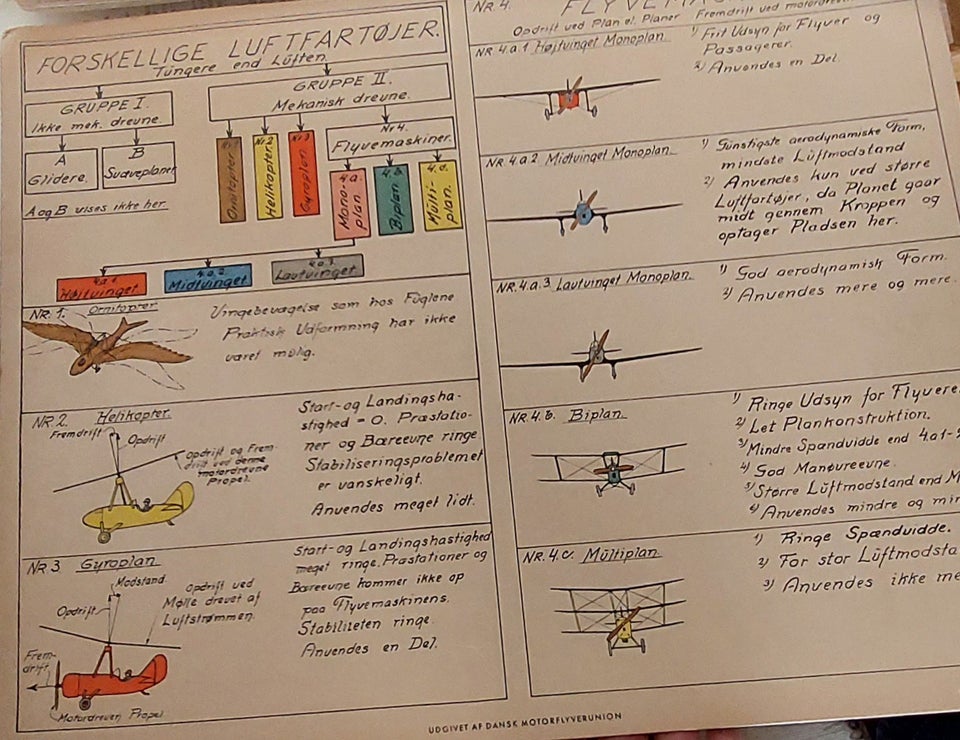 FORSKELLIGE LUFTFARTØJER.
Tungere end Luften.
GRUPPE I.
Ikke mek. drevne.
GRUPPE II.
Mekanisk drevne.
A
Glidere.
B
Svæveplaner
A og B vises ikke her.
Nr 1
Ornitopter
Nr 2
Helikopter
Nr 3
Gyroplan
Nr 4.
Flyvemaskiner.
4.a.
Mono-
plan.
4.b.
Biplan.
4.c.
Multi-
plan.
4.a.1
Højtvinget
4.a.2.
Midtvinget
4.a.3.
Lavtvinget
NR. 1. Ornitopter
Vingebevægelse som hos Fuglene
Praktisk Udformning har ikke
været mulig.
NR 2. Helikopter.
Fremdrift
Opdrift
Opdrift og Frem-
drift ved denne
motordrevne
Propel.
Start- og Landingsha-
stighed = 0. Præstatio-
ner og Bæreevne ringe.
Stabiliseringsproblemet
er vanskeligt.
Anvendes meget lidt.
NR 3 Gyroplan
Modstand
Opdrift
Opdrift ved
Mølle drevet af
Luftstrømmen.
Frem-
drift
Motordreven Propel
Start- og Landingshastighed
meget ringe. Præstationer og
Bæreevne kommer ikke op
paa Flyvemaskinens.
Stabiliteten ringe.
Anvendes en Del.
NR. 4.
Opdrift ved Plan el. Planer Fremdrift ved
NR 4.a.1 Højtvinget Monoplan.
1) Frit Udsyn for Flyver og
Passagerer.
2) Anvendes en Del.
NR 4.a.2 Midtvinget Monoplan.
1) Gunstigste aerodynamiske Form,
mindste Luftmodstand
2) Anvendes kun ved større
Luftfartøjer, da Planet gaar
midt gennem Kroppen og
optager Pladsen her.
NR.4.a.3 Lavtvinget Monoplan.
1) God aerodynamisk Form.
2) Anvendes mere og mere.
NR. 4.b. Biplan.
1) Ringe Udsyn for Flyvere
2) Let Plankonstruktion.
3) Mindre Spændvidde end 4a1-
4) God Manøvreevne.
5) Større Luftmodstand end M
6) Anvendes mindre og min
NR. 4.c. Multiplan.
1) Ringe Spændvidde.
2) For stor Luftmodsta
3) Anvendes ikke me
UDGIVET AF DANSK MOTORFLYVERUNION